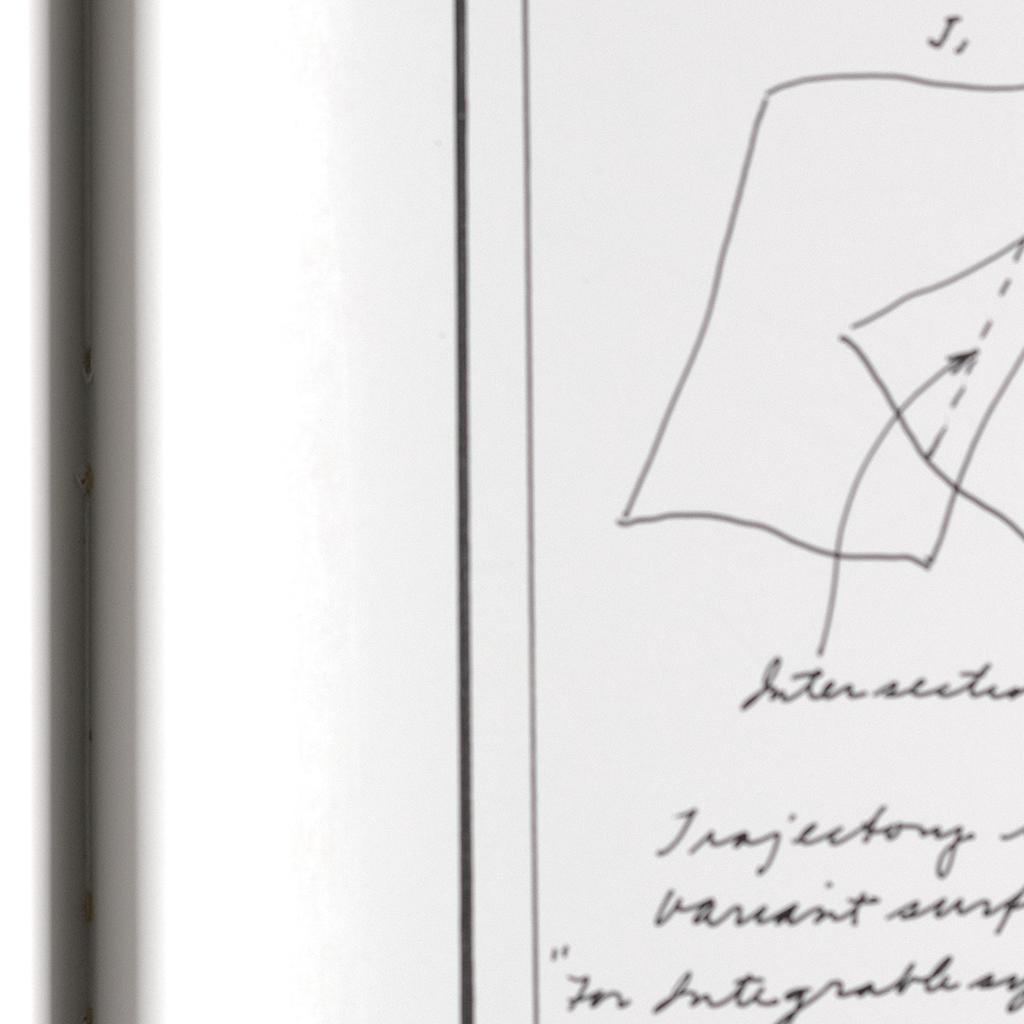 J,
Intersectio
Trajectory
variant surf
"For Integrable sy